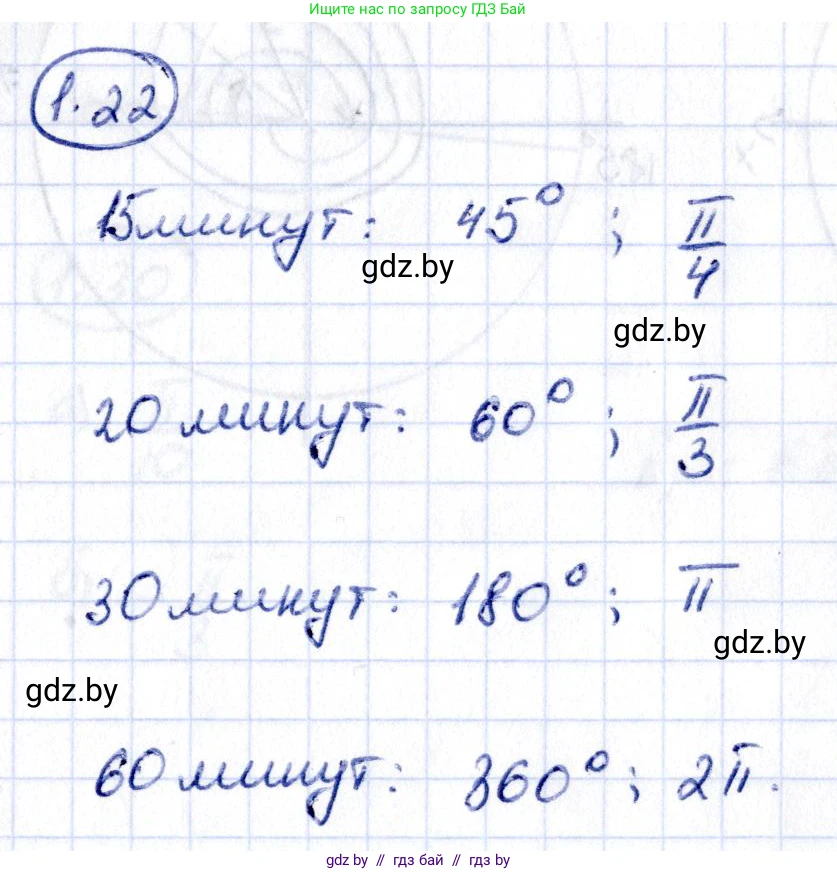 Ищите нас по запросу ГДЗ Бай
1.22
15 минут: 45° ; π/4
gdz.by
gdz.by
20 минут: 60° ; π/3
30 минут: 180° ; π
gdz.by
gdz.by
60 минут: 360° ; 2π.
gdz.by // гдз бай // gdz.by